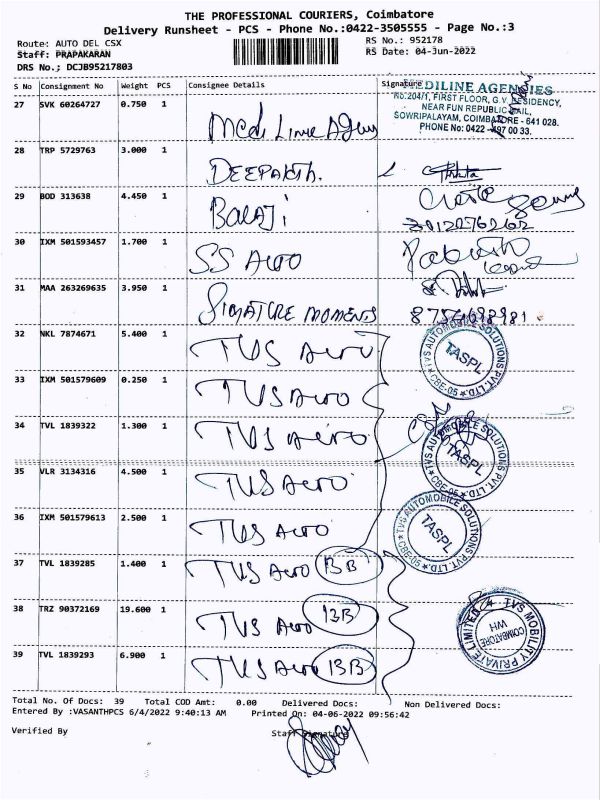 THE PROFESSIONAL COURIERS, Coimbatore
Delivery Runsheet - PCS - Phone No.:0422-3505555 - Page No.:3
Route: AUTO DEL CSX
RS No.: 952178
Staff: PRAPAKARAN
RS Date: 04-Jun-2022
DRS No.; DCJB95217803
S No Consignment No Weight PCS Consignee Details Signature
MEDILINE AGENCIES
No:204/1, FIRST FLOOR, G.V. RESIDENCY,
NEAR FUN REPUBLIC MAIL,
SOWRIPALAYAM, COIMBATORE - 641 028.
PHONE No: 0422 - 497 00 33.
27 SVK 60264727 0.750 1 Medi Line Agency
28 TRP 5729763 3.000 1 DEEPAKTH.
29 BOD 313638 4.450 1 BALAJI
30 IXM 501593457 1.700 1 SS AUTO
31 MAA 263269635 3.950 1 SIGNATURE MOMENTS
32 NKL 7874671 5.400 1 TVS Auto
TVS AUTOMOBILE SOLUTIONS PVT. LTD. CBE-05 TASPL
33 IXM 501579609 0.250 1 TVS Auto
34 TVL 1839322 1.300 1 TVS Auto
TVS AUTOMOBILE SOLUTIONS PVT. LTD. CBE-05 TASPL
35 VLR 3134316 4.500 1 TVS Auto
36 IXM 501579613 2.500 1 TVS Auto
TVS AUTOMOBILE SOLUTIONS PVT. LTD. CBE-05 TASPL
37 TVL 1839285 1.400 1 TVS Auto BB
38 TRZ 90372169 19.600 1 TVS Auto BB
TVS MOBILITY PRIVATE LIMITED COIMBATORE WH
39 TVL 1839293 6.900 1 TVS Auto BB
Total No. Of Docs: 39 Total COD Amt: 0.00 Delivered Docs: Non Delivered Docs:
Entered By :VASANTHPCS 6/4/2022 9:40:13 AM Printed On: 04-06-2022 09:56:42
Verified By Staff Signature